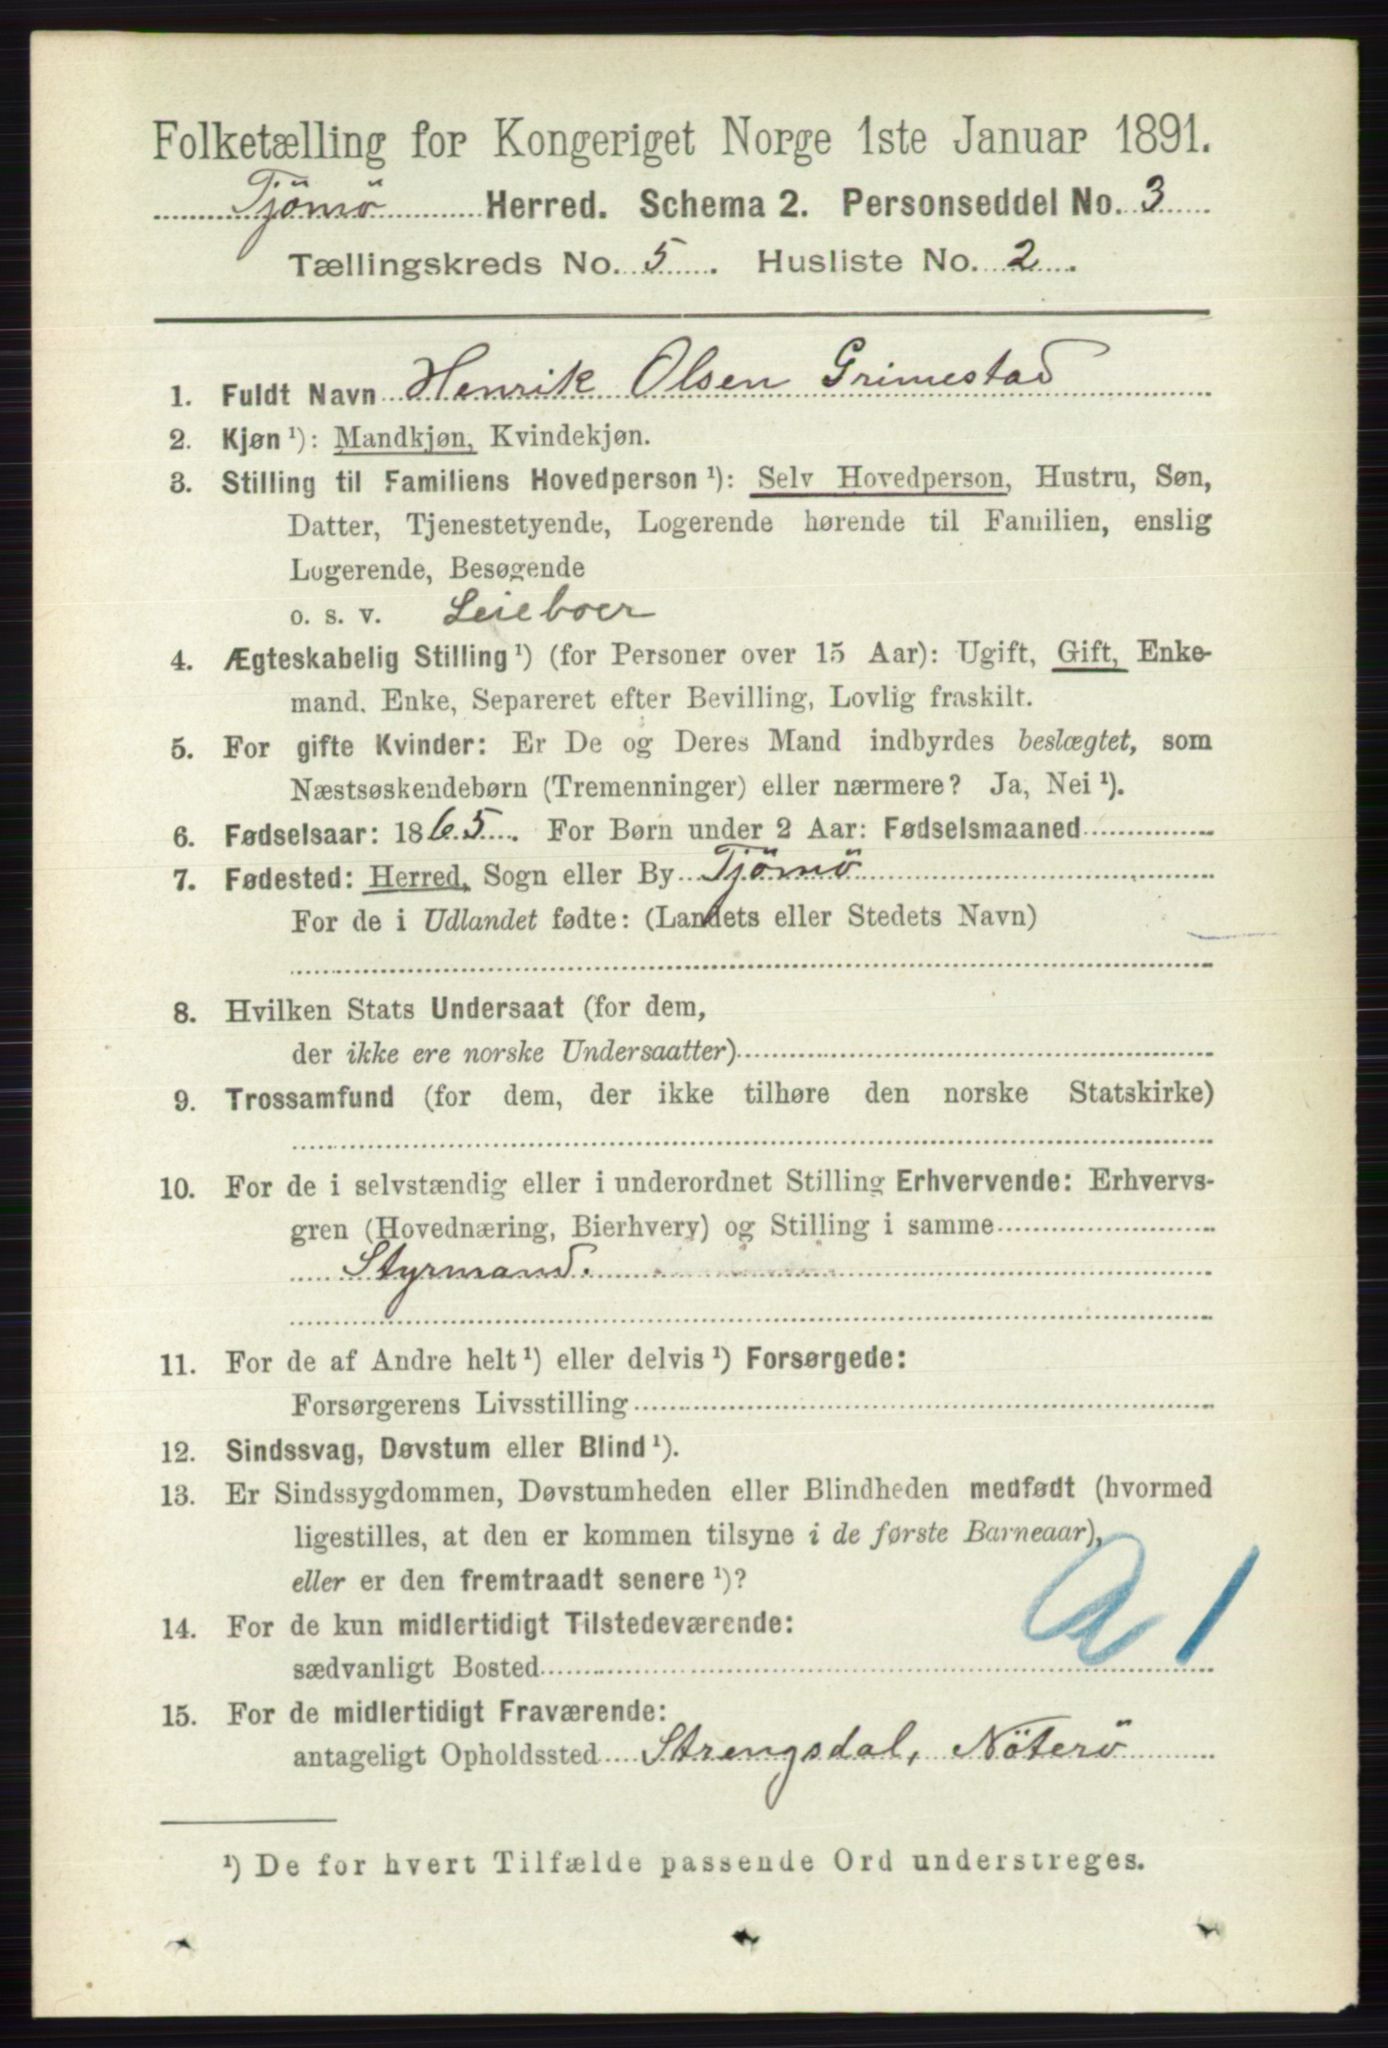 Folketælling for Kongeriget Norge 1ste Januar 1891.
Tjömö Herred. Schema 2. Personseddel No. 3
Tællingskreds No. 5. Husliste No. 2.
1. Fuldt Navn Henrik Olsen Grimestad
2. Kjøn¹): Mandkjøn, Kvindekjøn.
3. Stilling til Familiens Hovedperson¹): Selv Hovedperson, Hustru, Søn,
Datter, Tjenestetyende, Logerende hørende til Familien, enslig
Logerende, Besøgende
o. s. v. Leieboer
4. Ægteskabelig Stilling¹) (for Personer over 15 Aar): Ugift, Gift, Enke-
mand, Enke, Separeret efter Bevilling, Lovlig fraskilt.
5. For gifte Kvinder: Er De og Deres Mand indbyrdes beslægtet, som
Næstsøskendebørn (Tremenninger) eller nærmere? Ja, Nei¹).
6. Fødselsaar: 1865. For Børn under 2 Aar: Fødselsmaaned
7. Fødested: Herred, Sogn eller By Tjömö
For de i Udlandet fødte: (Landets eller Stedets Navn)
8. Hvilken Stats Undersaat (for dem,
der ikke ere norske Undersaatter)
9. Trossamfund (for dem, der ikke tilhøre den norske Statskirke)
10. For de i selvstændig eller i underordnet Stilling Erhvervende: Erhvervs-
gren (Hovednæring, Bierhverv) og Stilling i samme
Styrmand.
11. For de af Andre helt¹) eller delvis¹) Forsørgede:
Forsørgerens Livsstilling
12. Sindssvag, Døvstum eller Blind¹).
13. Er Sindssygdommen, Døvstumheden eller Blindheden medfødt (hvormed
ligestilles, at den er kommen tilsyne i de første Barneaar),
eller er den fremtraadt senere¹)?
a 1
14. For de kun midlertidigt Tilstedeværende:
sædvanligt Bosted
15. For de midlertidigt Fraværende:
antageligt Opholdssted Strengsdal, Nöterö
¹) De for hvert Tilfælde passende Ord understreges.